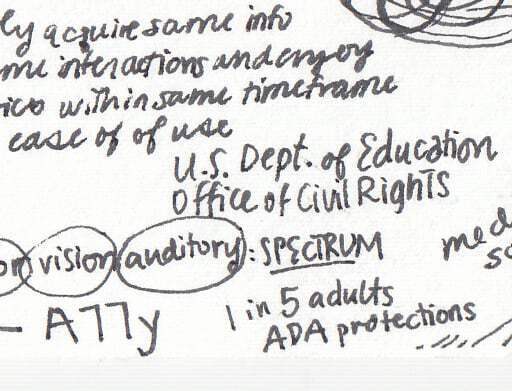 ly acquire same info
me interactions and enjoy
within same timeframe
ease of of use
U.S. Dept. of Education
Office of Civil Rights
on vision auditory: SPECTRUM
- A11y
1 in 5 adults
ADA protections